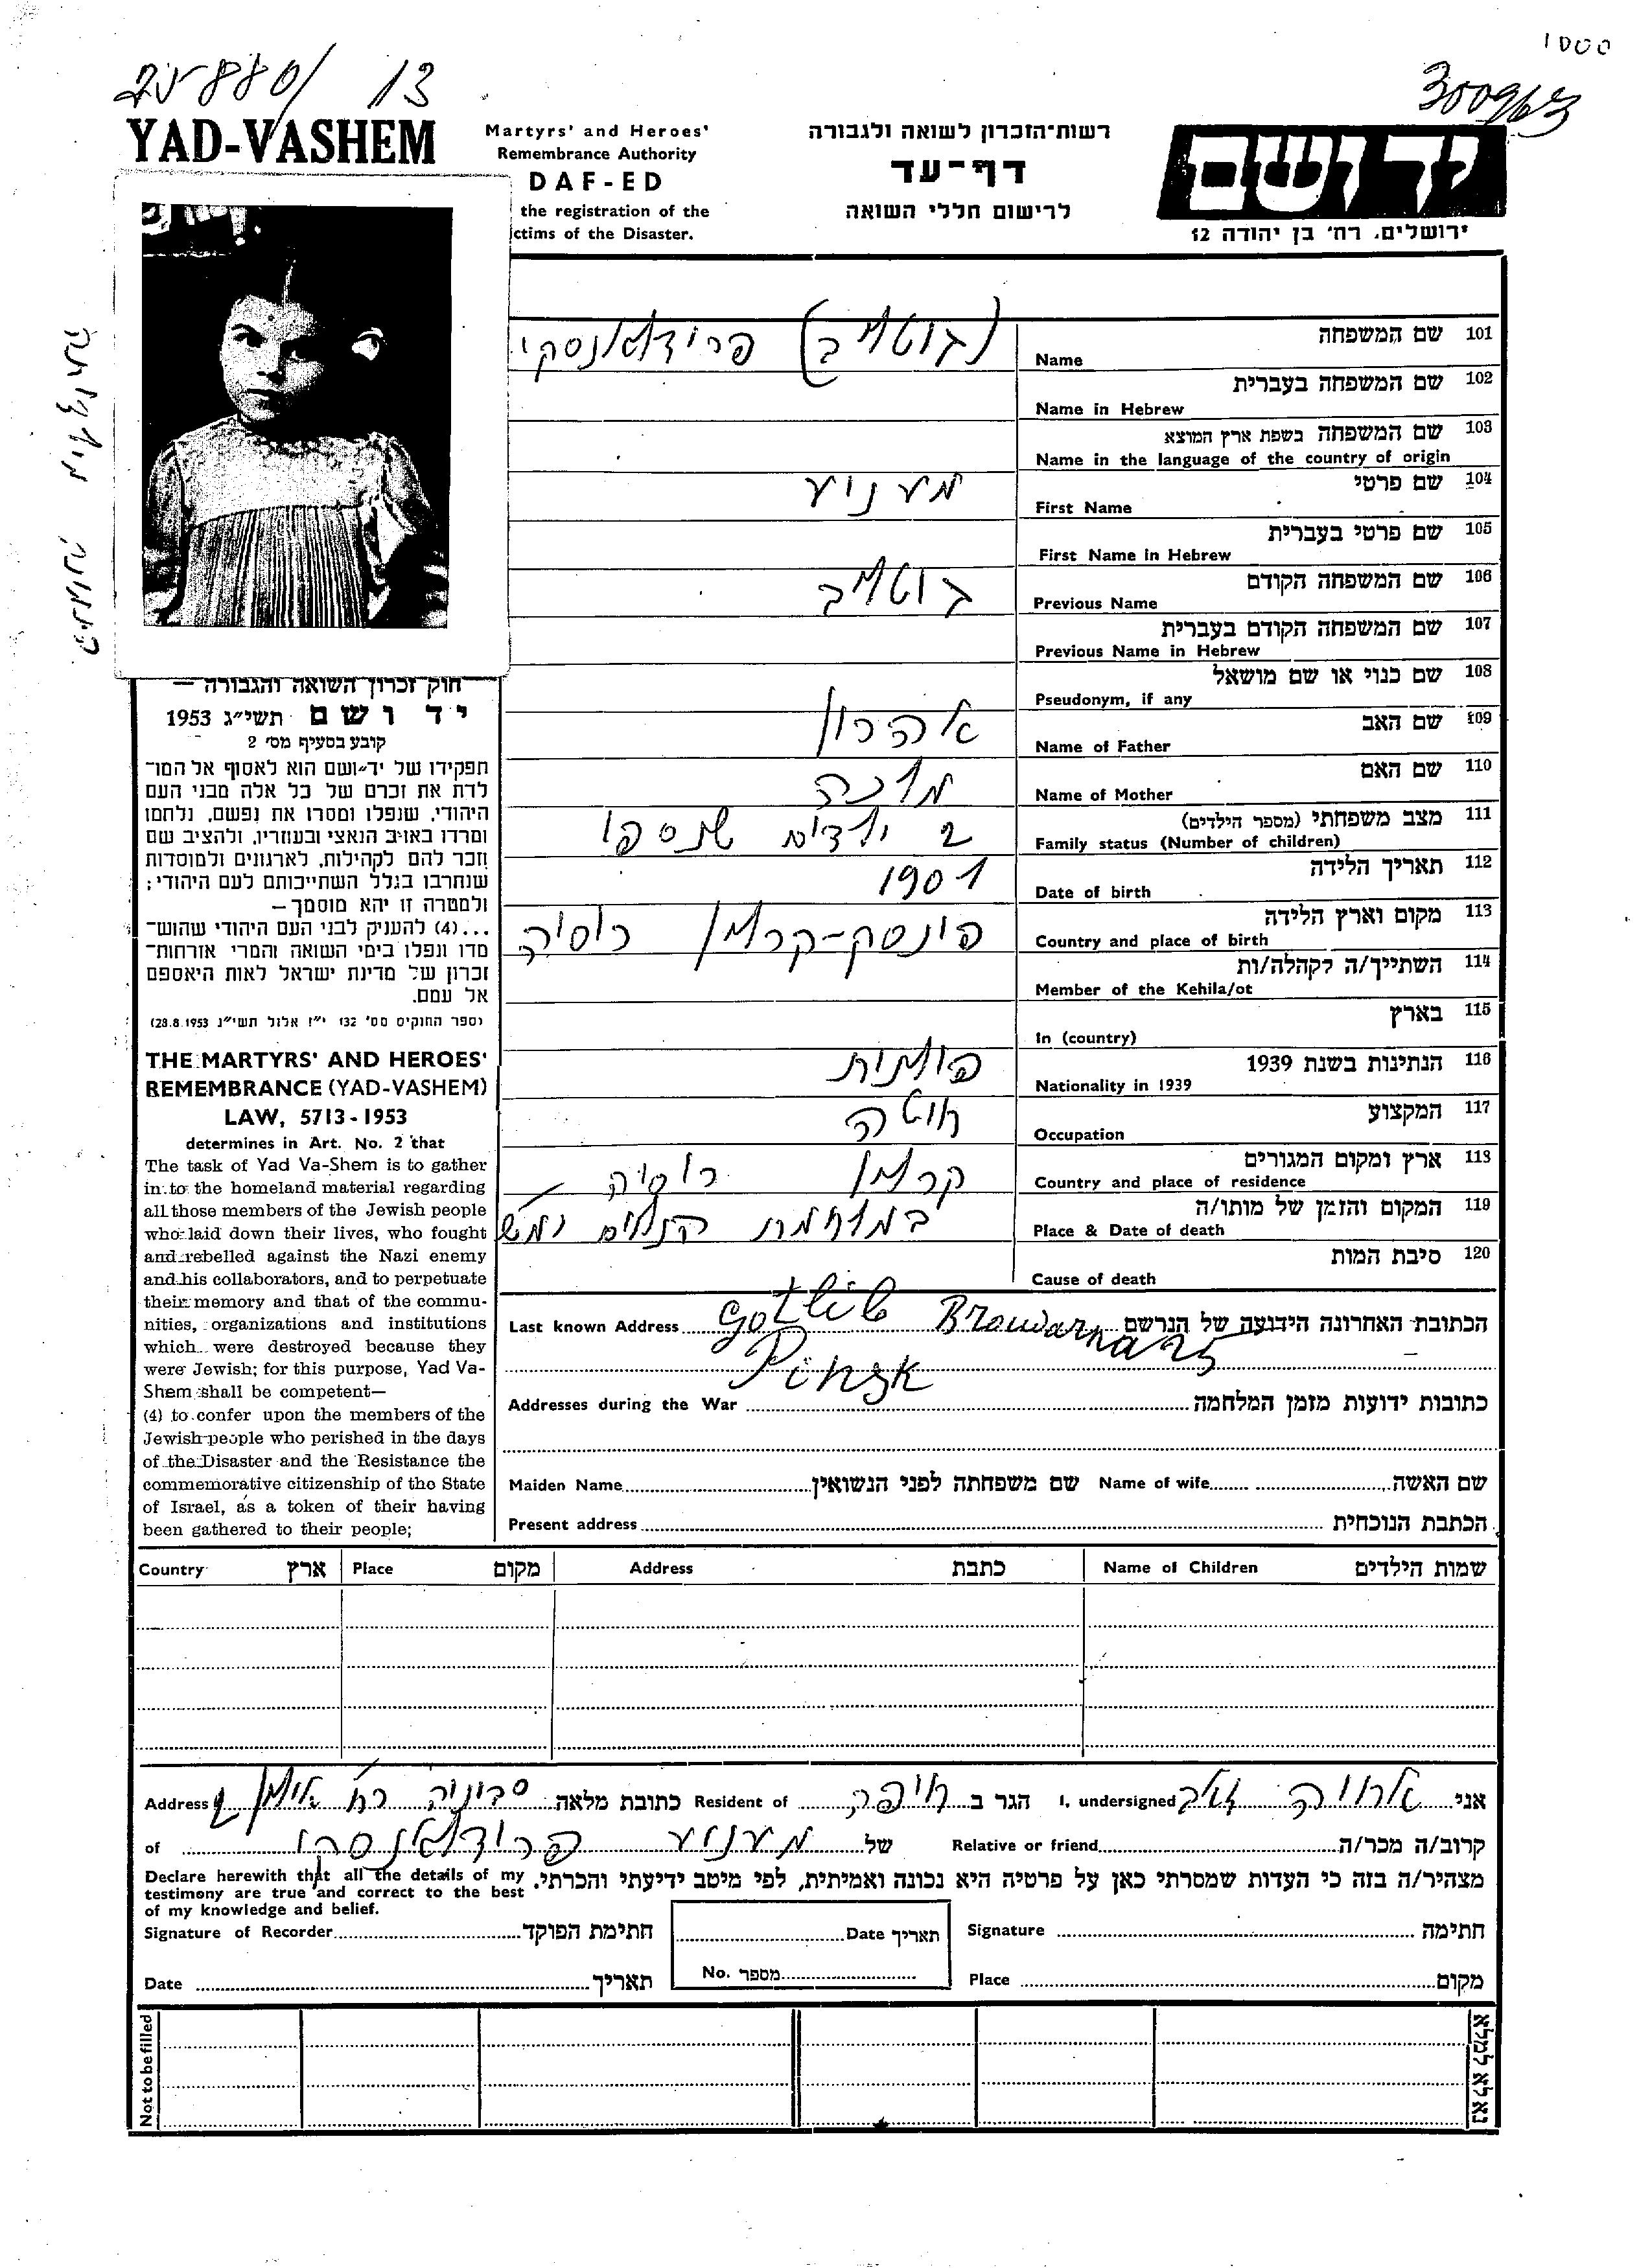 1000
25880/ 13
300963
YAD-VASHEM
Martyrs' and Heroes'
Remembrance Authority
DAF-ED
the registration of the
ictims of the Disaster.
רשות־הזכרון לשואה ולגבורה
דף־עד
לרישום חללי השואה
יד ושם
ירושלים, רח' בן יהודה 12
101 שם המשפחה Name (גוטליב) פרידלנסקי
102 שם המשפחה בעברית Name in Hebrew
103 שם המשפחה בשפת ארץ המוצא Name in the language of the country of origin
104 שם פרטי First Name
105 שם פרטי בעברית First Name in Hebrew
106 שם המשפחה הקודם Previous Name גוטליב
107 שם המשפחה הקודם בעברית Previous Name in Hebrew
108 שם כנוי או שם מושאל Pseudonym, if any
109 שם האב Name of Father אהרון
110 שם האם Name of Mother
111 מצב משפחתי (מספר הילדים) Family status (Number of children) 2 ילדים שנספו
112 תאריך הלידה Date of birth 1901
113 מקום וארץ הלידה Country and place of birth פינסק-קרלין רוסיה
114 השתייך/ה לקהלה/ות Member of the Kehila/ot
115 בארץ In (country)
116 הנתינות בשנת 1939 Nationality in 1939 פולנית
117 המקצוע Occupation
118 ארץ ומקום המגורים Country and place of residence קרלין רוסיה
119 המקום והזמן של מותו/ה Place & Date of death במלחמת
120 סיבת המות Cause of death
חוק זכרון השואה והגבורה —
יד ושם תשי״ג 1953
קובע בסעיף מס׳ 2
תפקידו של יד־ושם הוא לאסוף אל המו־
לדת את זכרם של כל אלה מבני העם
היהודי, שנפלו ומסרו את נפשם, נלחמו
ומרדו באויב הנאצי ובעוזריו, ולהציב שם
וזכר להם לקהילות, לארגונים ולמוסדות
שנחרבו בגלל השתייכותם לעם היהודי;
ולמטרה זו יהא מוסמך—
...(4) להעניק לבני העם היהודי שהוש־
מדו ונפלו בימי השואה והמרי אזרחות־
זכרון של מדינת ישראל לאות היאספם
אל עמם.
(ספר החוקים מס' 132 י״ז אלול תשי״ג 28.8.1953)
THE MARTYRS' AND HEROES'
REMEMBRANCE (YAD-VASHEM)
LAW, 5713-1953
determines in Art. No. 2 that
The task of Yad Va-Shem is to gather
in to the homeland material regarding
all those members of the Jewish people
who laid down their lives, who fought
and rebelled against the Nazi enemy
and his collaborators, and to perpetuate
their memory and that of the commu-
nities, organizations and institutions
which were destroyed because they
were Jewish; for this purpose, Yad Va-
Shem shall be competent—
(4) to confer upon the members of the
Jewish people who perished in the days
of the Disaster and the Resistance the
commemorative citizenship of the State
of Israel, as a token of their having
been gathered to their people;
Last known Address Gotlib Browarna 25 הכתובת האחרונה הידועה של הנרשם
Pinsk
Addresses during the War כתובות ידועות מזמן המלחמה
Maiden Name שם משפחתה לפני הנשואין Name of wife שם האשה
Present address הכתבת הנוכחית
Country ארץ Place מקום Address כתבת Name of Children שמות הילדים
אני I, undersigned הגר ב חיפה Resident of כתובת מלאה Address
קרוב/ה מכר/ה Relative or friend של פרידלנסקי of
מצהיר/ה בזה כי העדות שמסרתי כאן על פרטיה היא נכונה ואמיתית, לפי מיטב ידיעתי והכרתי.
Declare herewith that all the details of my
testimony are true and correct to the best
of my knowledge and belief.
Signature of Recorder חתימת הפוקד Date תאריך Signature חתימה
Date תאריך No. מספר Place מקום
Not to be filled נא לא למלא